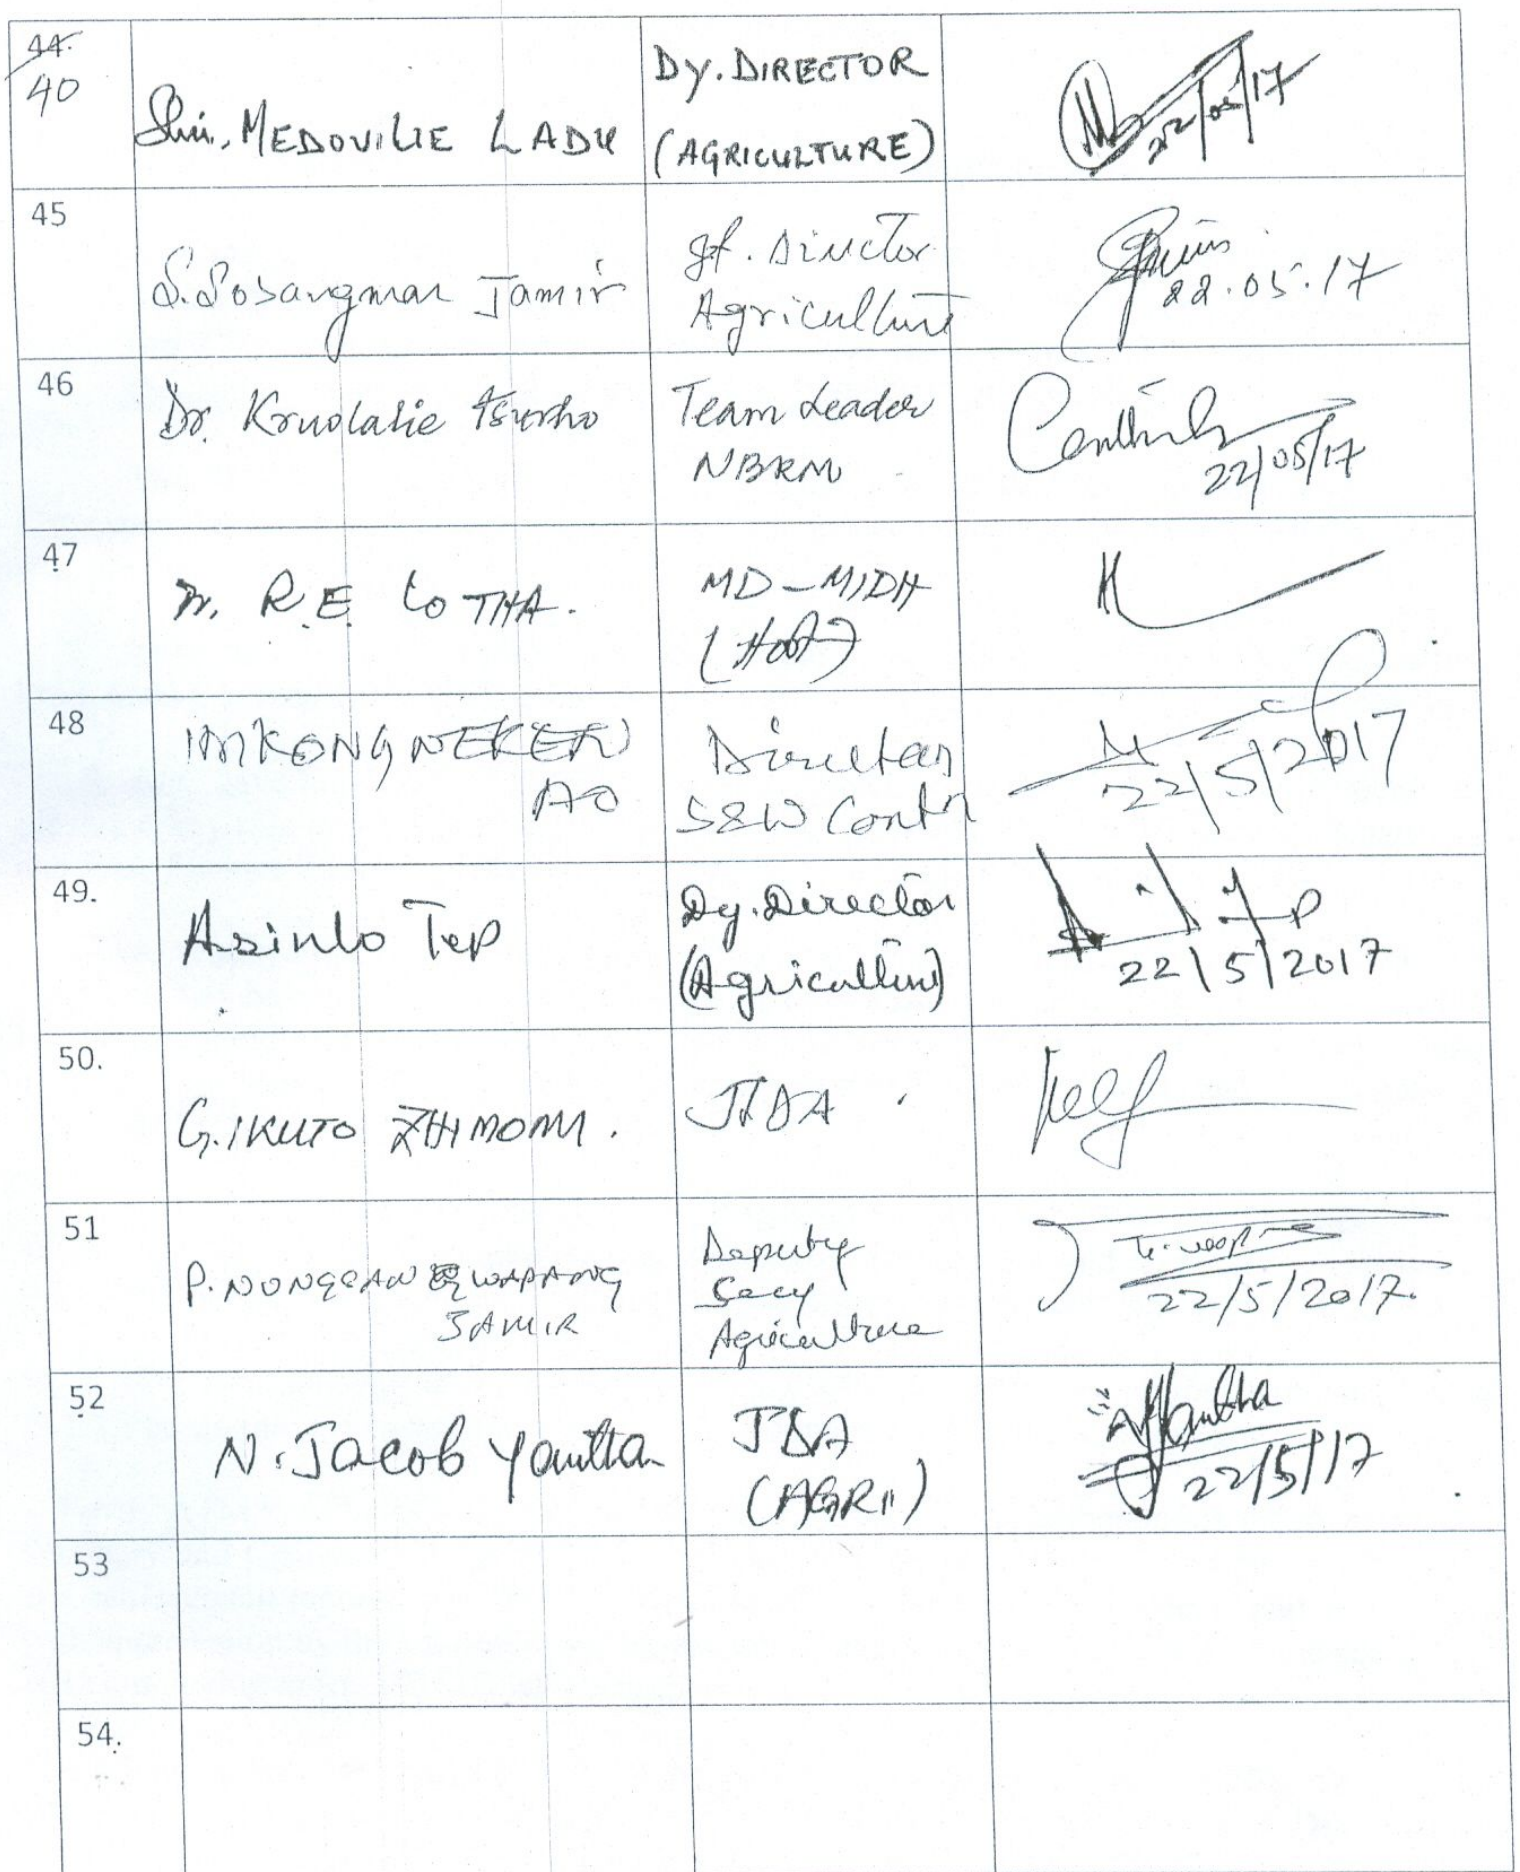 44.
40
Shri. MEDOVILIE LADU
DY. DIRECTOR
(AGRICULTURE)
22/05/17
45
S. Sosangmar Jamir
Jt. Director
Agriculture
22.05.17
46
Dr. Kruolalie Tsurho
Team Leader
NBRM
22/05/17
47
R.E. LOTHA.
MD-MIDH
(Hort)
48
IMKONGNEKEN
AO
Director
S&W Contn
22/5/2017
49.
Asinlo Tep
Dy. Director
(Agriculture)
22/5/2017
50.
G. IKUTO ZHIMOMI.
JDA
51
P. NUNGSAN WAPANG
JAMIR
Deputy
Secy
Agriculture
22/5/2017.
52
N. Jacob Yanttha
JDA
(AGRI)
22/5/17
53
54.